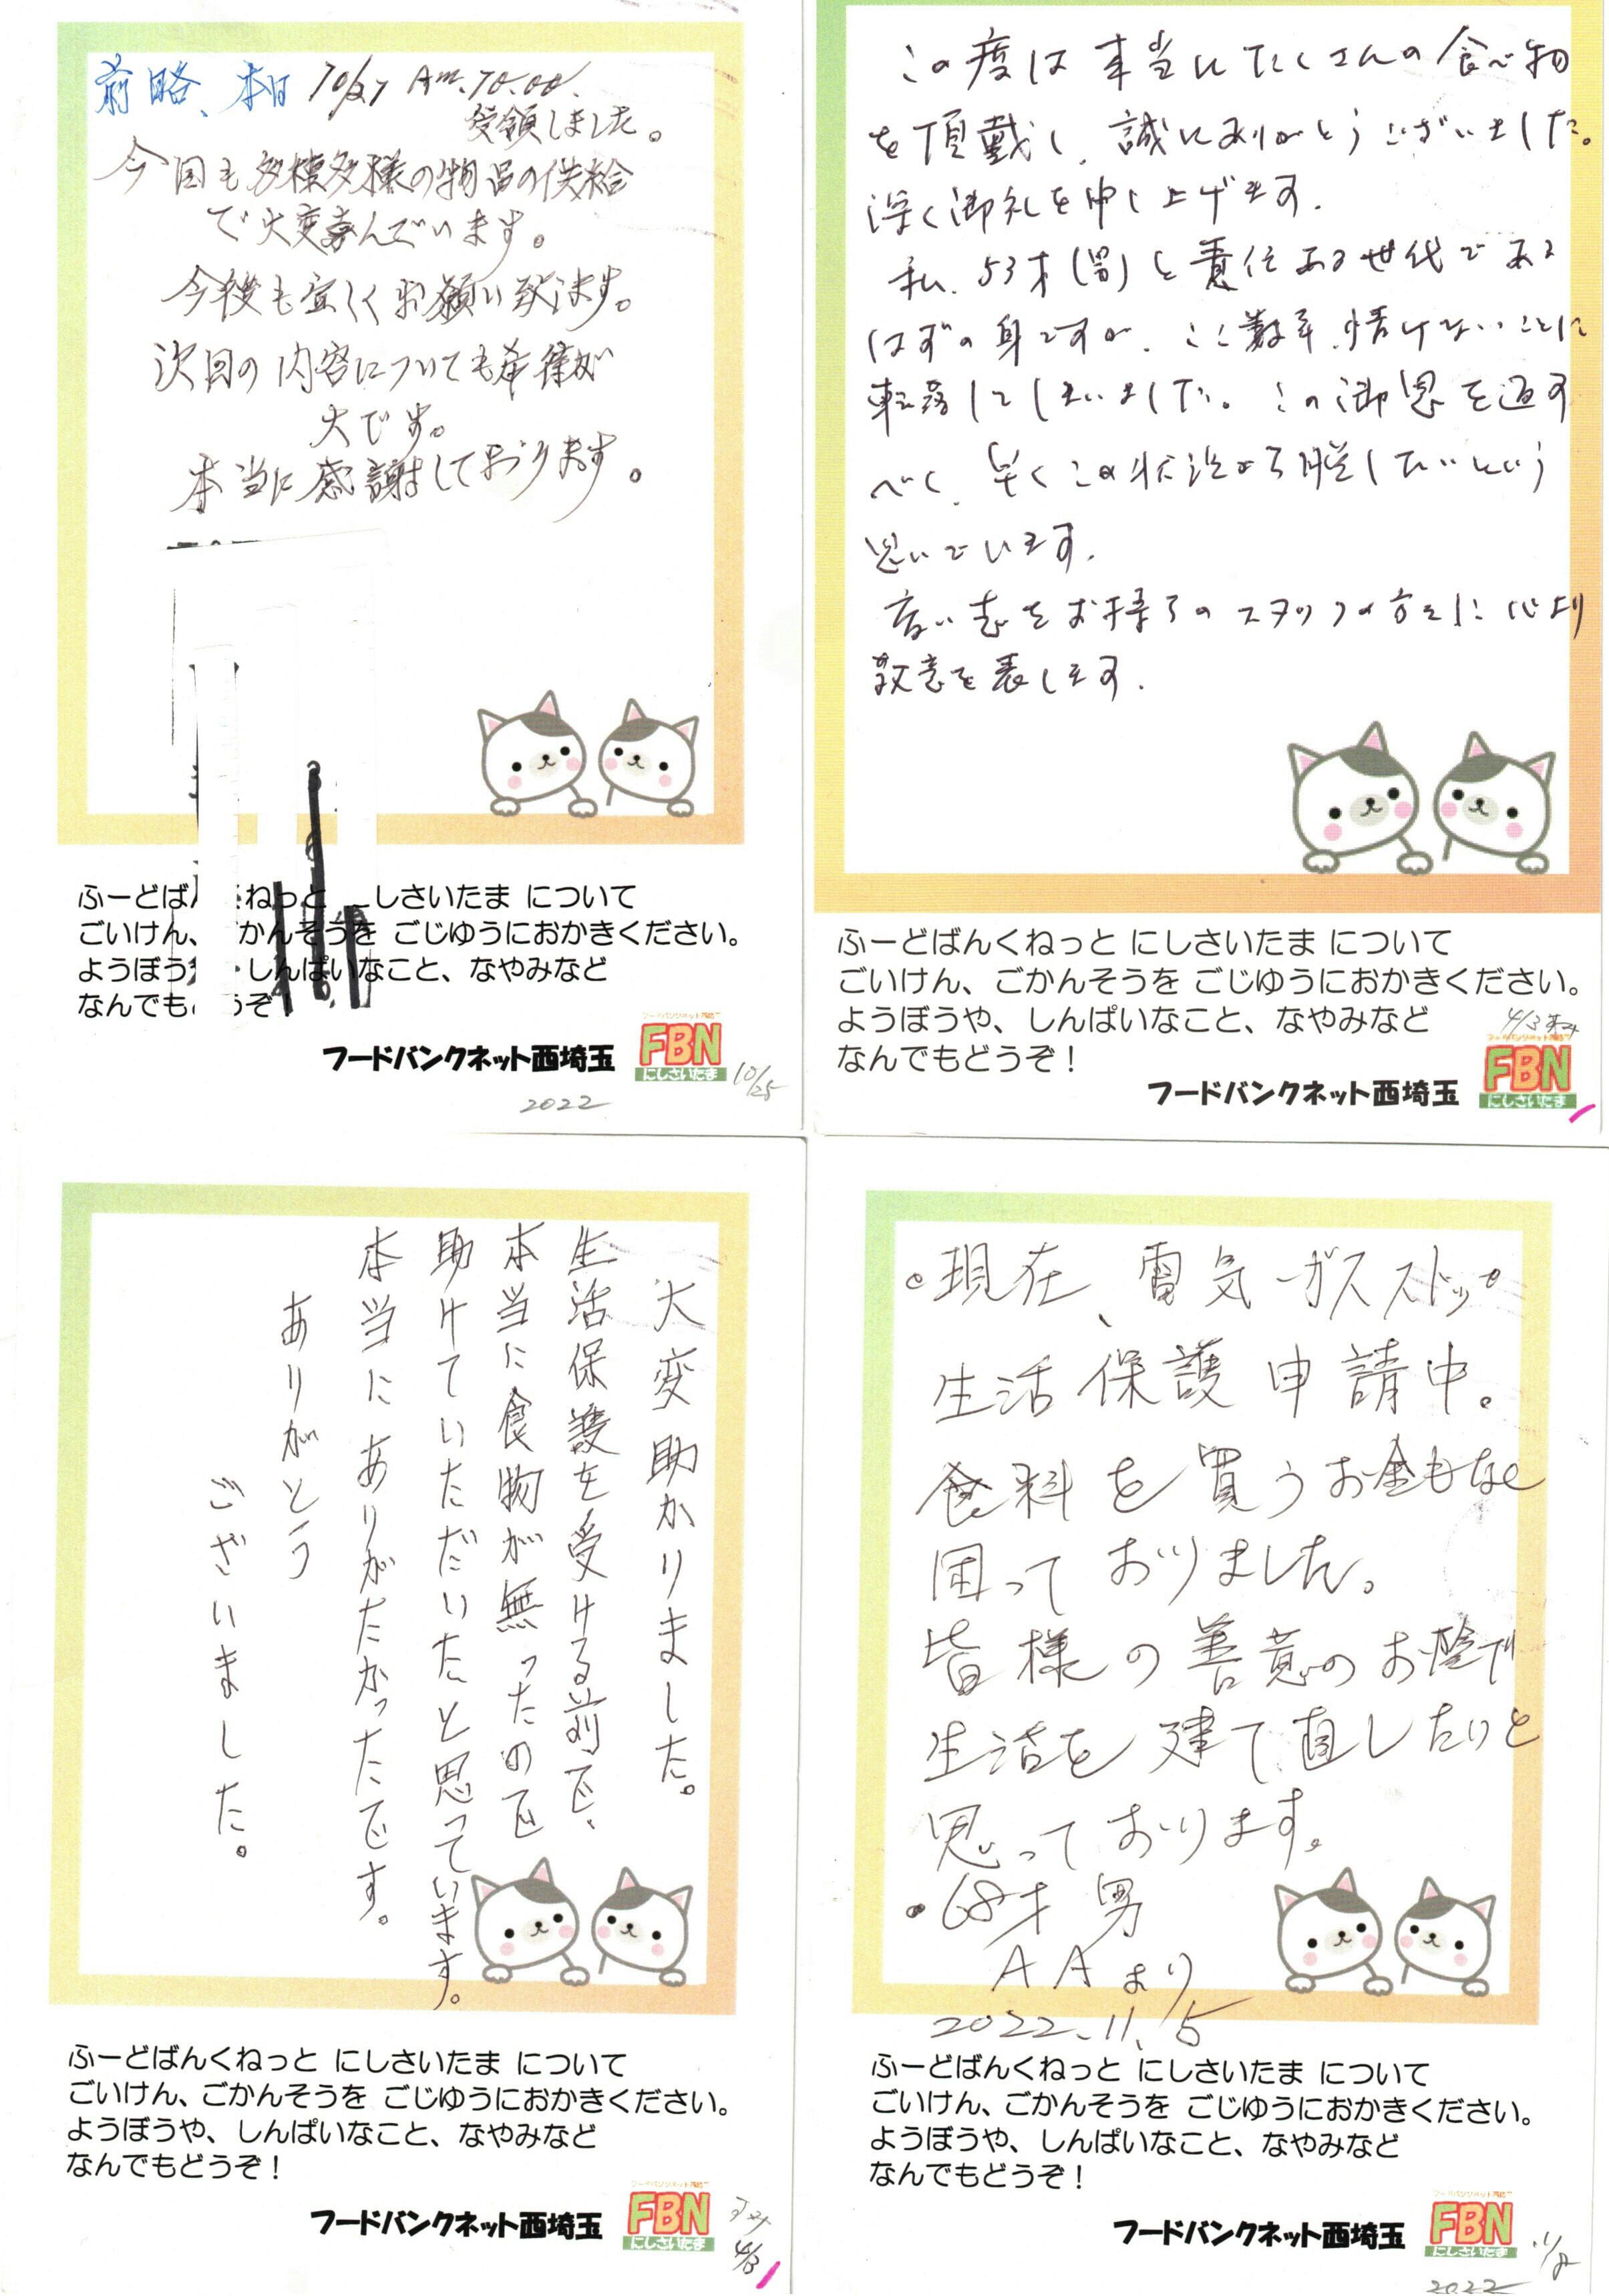 前略、本日 10/27 Am.10.00.
受領しました。
今回も多種多様の物品の供給
で大変喜んでいます。
今後も宜しくお願い致します。
次回の内容についても希待が
大です。
本当に感謝しております。
ふーどば くねっと にしさいたま について
ごいけん、ごかんそうを ごじゆうにおかきください。
ようぼう しんぱいなこと、なやみなど
なんでも うぞ
フードバンクネット西埼玉
フードバンクネット西埼玉
FBN
にしさいたま
10/25
2022
この度は本当にたくさんの食べ物
を頂戴し、誠にありがとうございました。
深く御礼を申し上げます.
私、53才(男)と責任ある世代である
はずの身ですが、ここ数年、情けないことに
転落してしまいました。この御恩を返す
べく、早くこの状況から脱したいという
思いでいます.
高い志をお持ちのスタッフの方々に心より
敬意を表します.
ふーどばんくねっと にしさいたま について
ごいけん、ごかんそうを ごじゆうにおかきください。
ようぼうや、しんぱいなこと、なやみなど
なんでもどうぞ！
4/3
フードバンクネット西埼玉
フードバンクネット西埼玉
FBN
にしさいたま
大変助かりました。
生活保護を受ける前で、
本当に食物が無ったので
助けていただいたと思っています。
本当にありがたかったです。
ありがとう
ございました。
ふーどばんくねっと にしさいたま について
ごいけん、ごかんそうを ごじゆうにおかきください。
ようぼうや、しんぱいなこと、なやみなど
なんでもどうぞ！
フードバンクネット西埼玉
フードバンクネット西埼玉
FBN
にしさいたま
4/3
・現在、電気ガスストップ
生活保護申請中。
食料を買うお金もなく
困っておりました。
皆様の善意のお陰で
生活を建て直したいと
思っております。
・68才 男
AAより
2022.11.5
ふーどばんくねっと にしさいたま について
ごいけん、ごかんそうを ごじゆうにおかきください。
ようぼうや、しんぱいなこと、なやみなど
なんでもどうぞ！
フードバンクネット西埼玉
フードバンクネット西埼玉
FBN
にしさいたま
2022